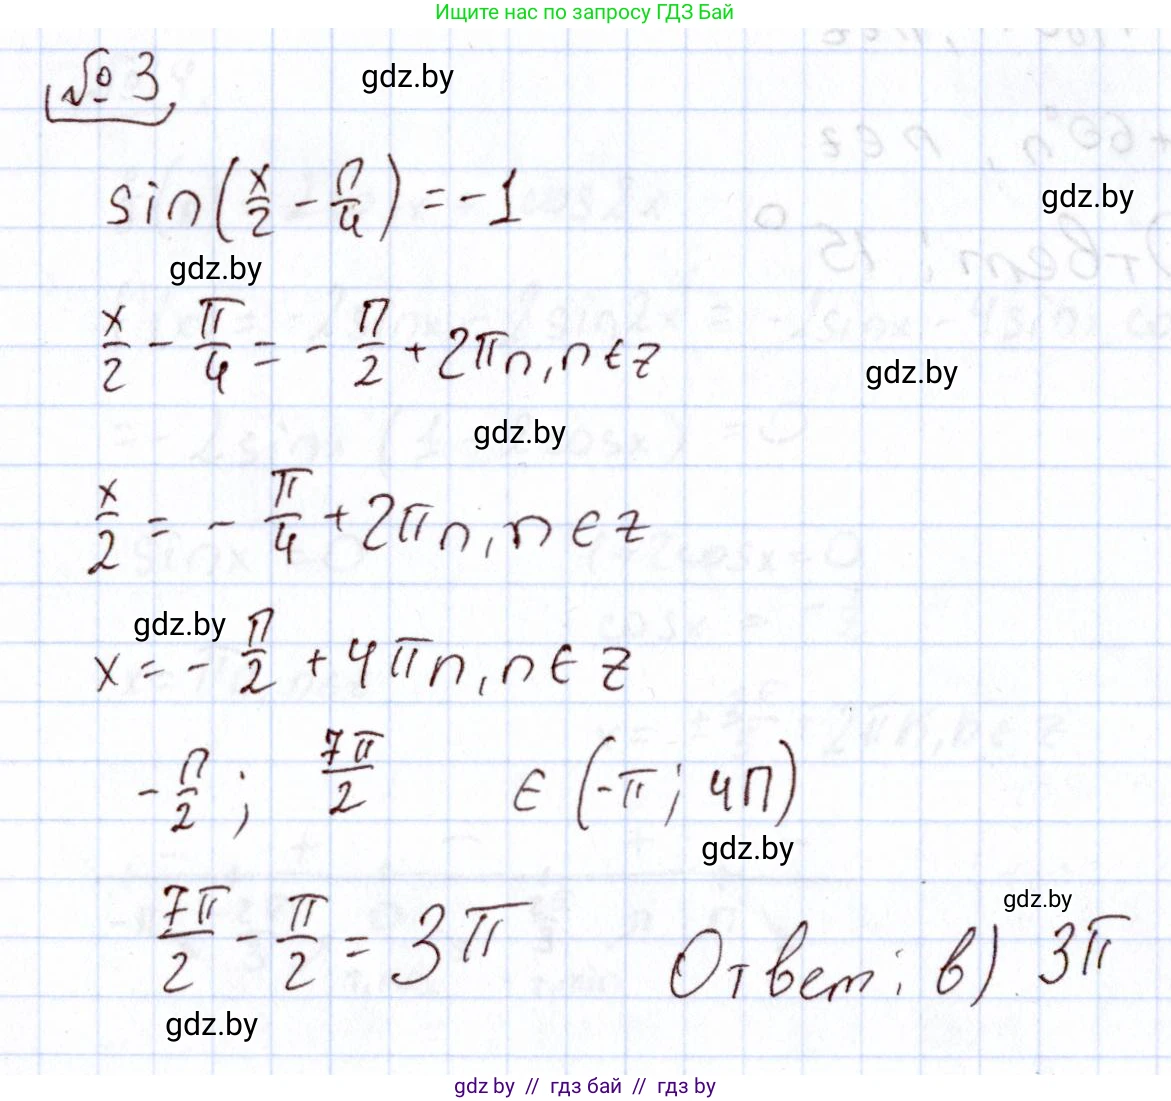 Ищите нас по запросу ГДЗ Бай
№ 3
gdz.by
sin(x/2 - π/4) = -1
gdz.by
gdz.by
x/2 - π/4 = - π/2 + 2πn, n ∈ z
gdz.by
gdz.by
x/2 = - π/4 + 2πn, n ∈ z
gdz.by
x = - π/2 + 4πn, n ∈ z
- π/2 ; 7π/2 ∈ (-π; 4π)
gdz.by
7π/2 - π/2 = 3π
gdz.by
Ответ: в) 3π
gdz.by
gdz by // гдз бай // gdz by